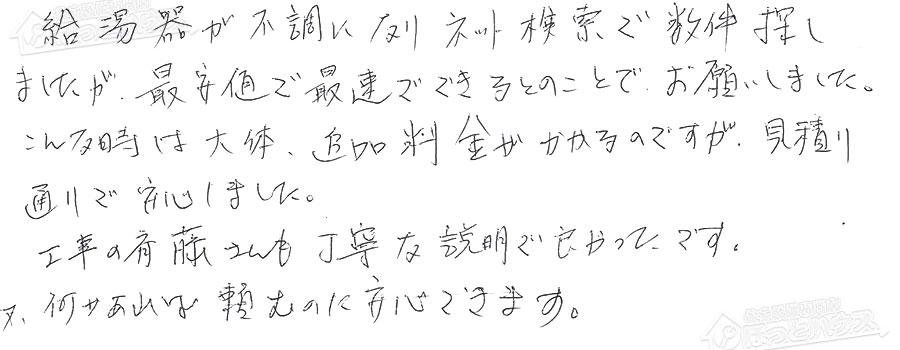 給湯器が不調になりネット検索で数件探し
ましたが、最安値で最速でできるとのことで、お願いしました。
こんな時は大体、追加料金がかかるのですが、見積り
通りで安心しました。
工事の斉藤さんも丁寧な説明で良かったです。
又、何かあれば頼むのに安心できます。
ほっとハウス